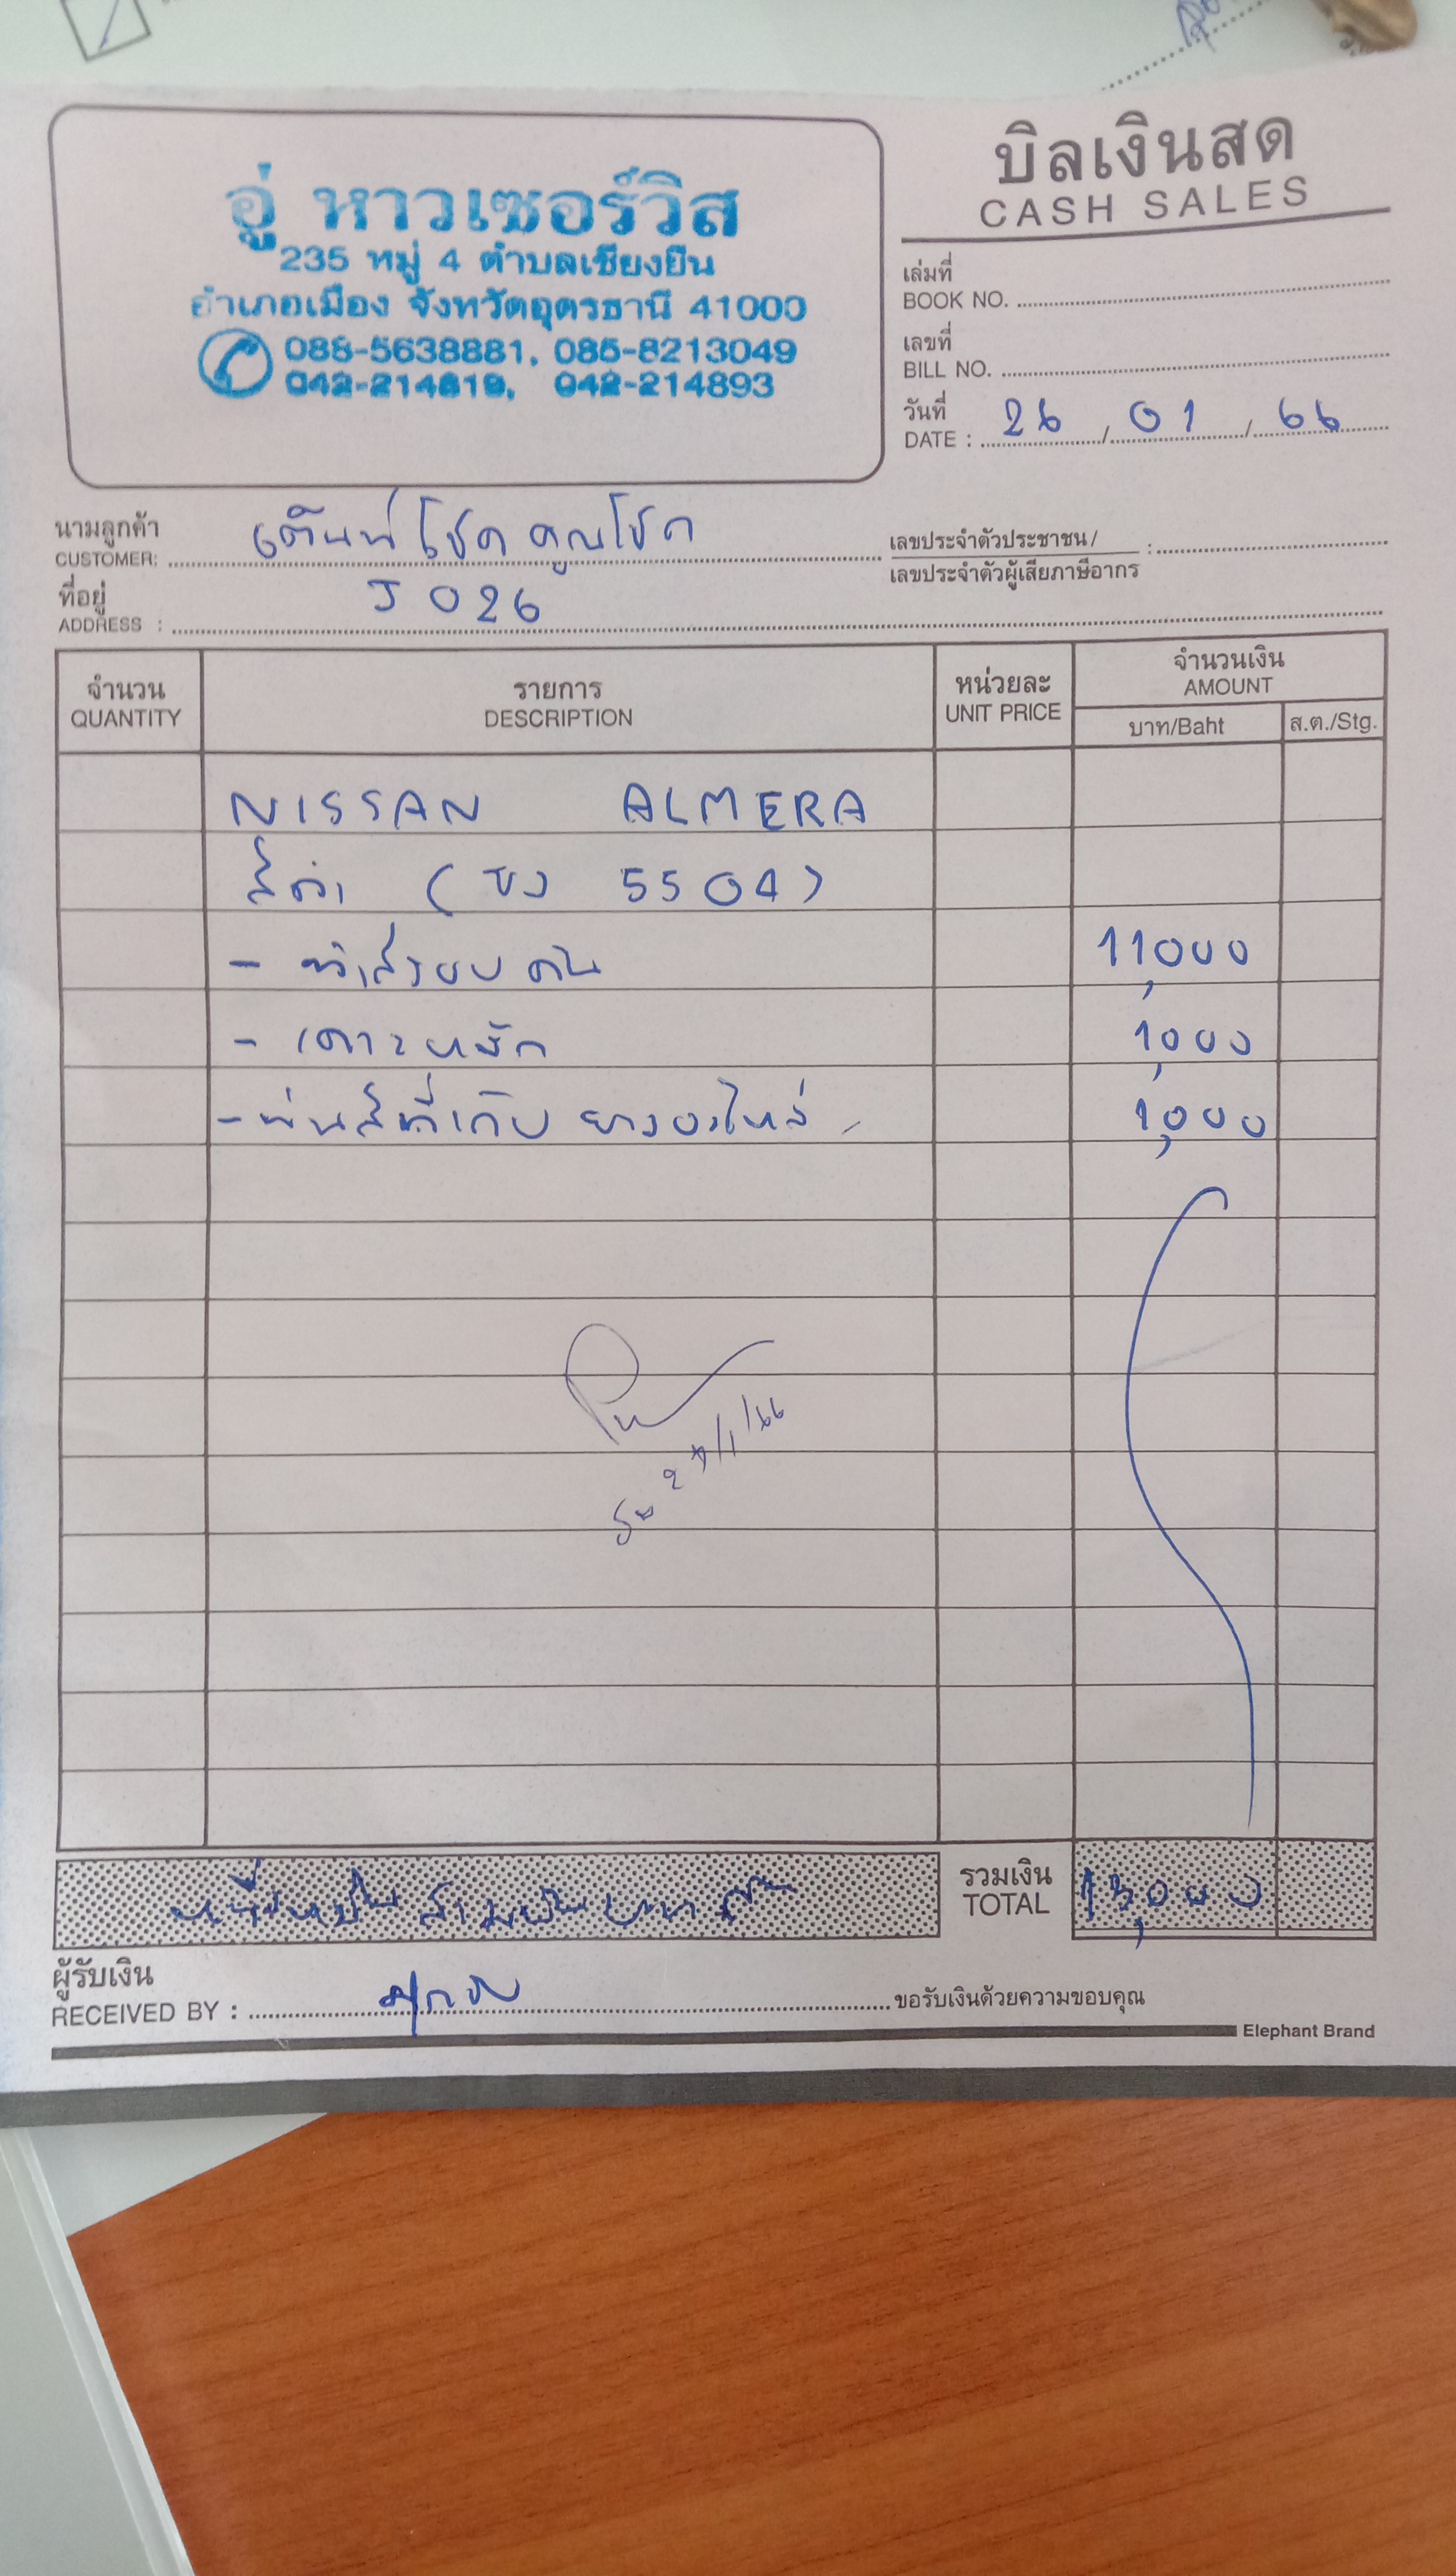 อู่ หาวเซอร์วิส
235 หมู่ 4 ตำบลเชียงยืน
อำเภอเมือง จังหวัดอุดรธานี 41000
088-5638881, 085-8213049
042-214819, 042-214893
บิลเงินสด
CASH SALES
เล่มที่
BOOK NO.
เลขที่
BILL NO.
วันที่
DATE : 26 / 01 / 66
นามลูกค้า
CUSTOMER: เต็นท์โชคคูณโชค
เลขประจำตัวประชาชน /
เลขประจำตัวผู้เสียภาษีอากร :
ที่อยู่
ADDRESS : J 026
จำนวน
QUANTITY
รายการ
DESCRIPTION
หน่วยละ
UNIT PRICE
จำนวนเงิน
AMOUNT
บาท/Baht
ส.ต./Stg.
NISSAN ALMERA
สีดำ ( ขง 5504 )
- ทำสีรอบคัน 11,000
- เคาะหนัก 1,000
- พ่นสีที่เก็บยางอะไหล่ 1,000
27/1/66
หนึ่งหมื่นสามพันบาท
รวมเงิน
TOTAL 13,000
ผู้รับเงิน
RECEIVED BY :
ขอรับเงินด้วยความขอบคุณ
Elephant Brand